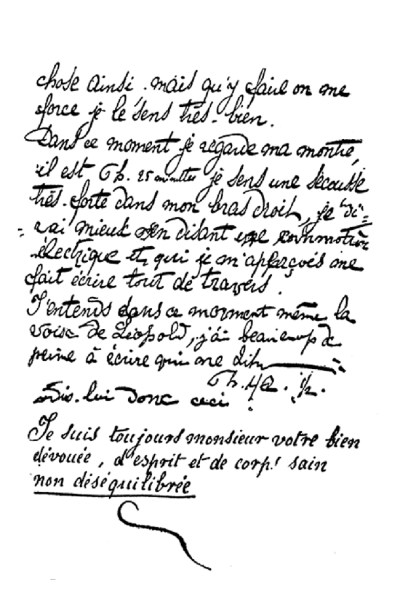 chose ainsi. mais qu'y faire on me
force je le sens très-bien.
Dans ce moment je regarde ma montre,
il est 6h. 25 minutes je sens une secousse
très-forte dans mon bras droit, je di-
-rai mieux en disant une commotion
électrique et qui je m'apperçois me
fait écrire tout de travers.
J'entends dans ce moment même la
voix de Léopold, j'ai beaucoup de
peine à écrire qui me dit
6h. 42. ½.
Dis-lui donc ceci:
Je suis toujours monsieur votre bien
dévouée, d'esprit et de corps sain
non déséquilibrée